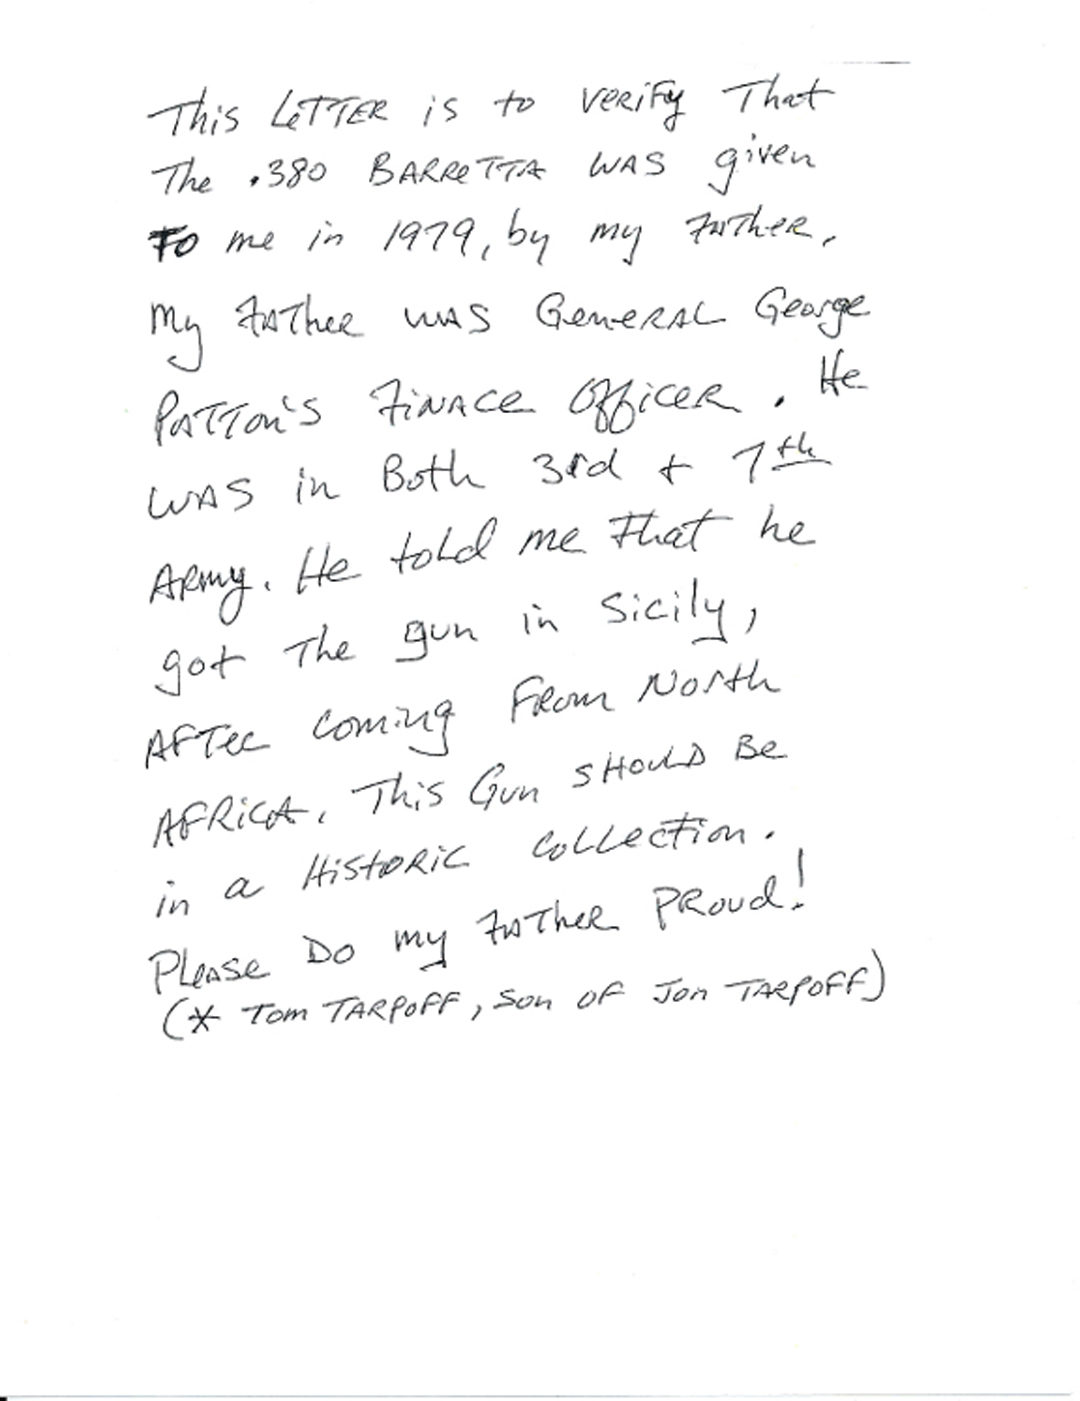 This LETTER is to verify That
The .380 BARRETTA WAS given
To me in 1979, by my FATHER.
My FATHER WAS GENERAL George
PATTON'S FINACE OFFICER. He
WAS in Both 3rd + 7th
ARMY. He told me that he
got The gun in Sicily,
AFTER coming From North
AFRICA. This Gun SHOULD BE
in a HISTORIC COLLECTION.
PLEASE Do my FATHER PROUD!
(* Tom TARPOFF, Son OF Jon TARPOFF)